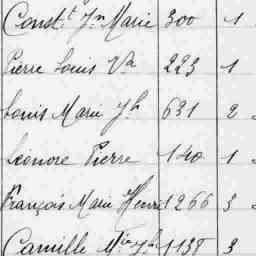 Const.t Jn Marie 300 1
Pierre Louis Va 223 1
Louis Marie Jh 631 2
Léonore Pierre 140 1
François Marie Henri 1266 3
Camille Mie Jh 1138 3